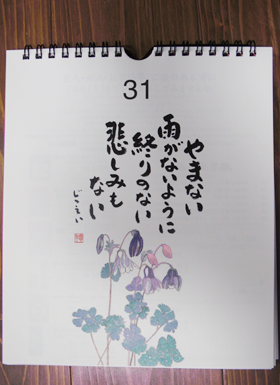 31
やまない
雨がないように
終りのない
悲しみも
ない
じこえい